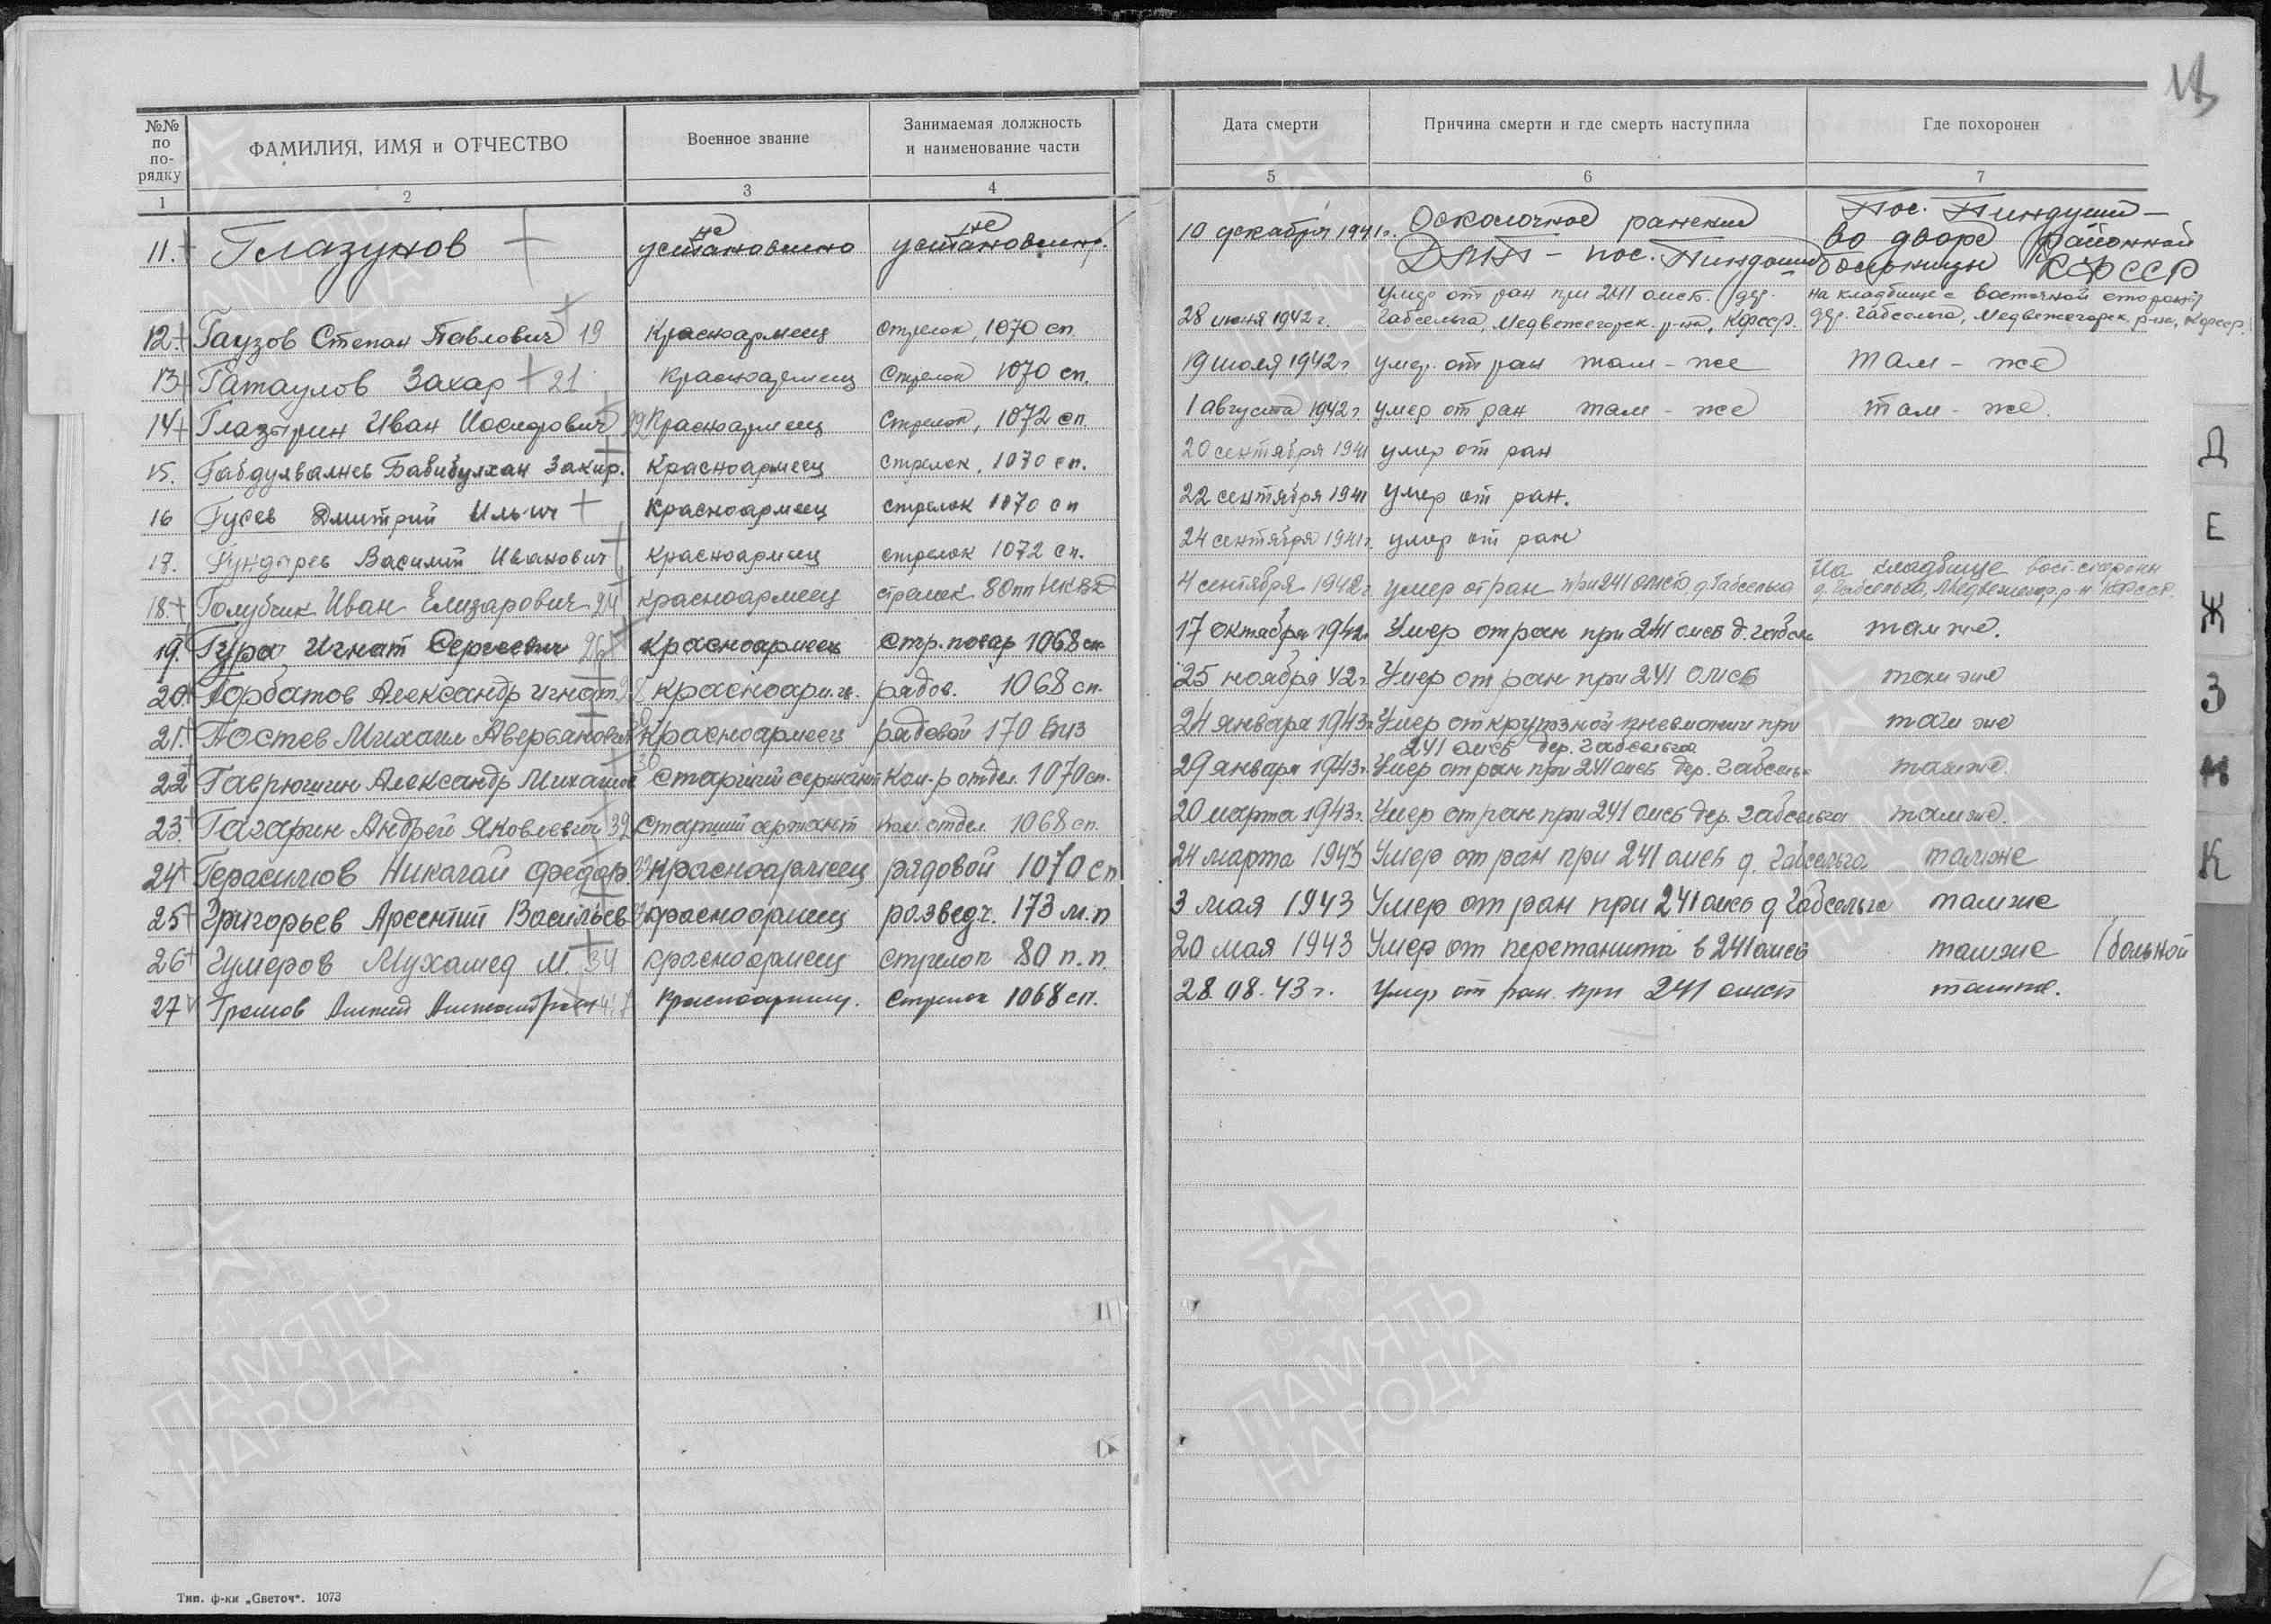 №№ по порядку
ФАМИЛИЯ, ИМЯ и ОТЧЕСТВО
Военное звание
Занимаемая должность и наименование части
Дата смерти
Причина смерти и где смерть наступила
Где похоронен
1 2 3 4 5 6 7
11. Глазунов не установлено не установлено. 10 декабря 1941г. Осколочное ранение ДПП - пос. Пиндуши Пос. Пиндуши - во дворе районной больницы КФССР
12. Гаузов Степан Павлович 19 Красноармеец Стрелок, 1070 сп. 28 июня 1942 г. умер от ран при 241 омсб. дер. Габсельга, Медвежегорск. р-на, КФССР. на кладбище с восточной стороны дер. Габсельга, Медвежегорск. р-на, КФССР
13 Гатаулов Захар 21 Красноармеец Стрелок 1070 сп. 19 июля 1942 г умер от ран там - же там - же
14 Глазырин Иван Иосифович 22 Красноармеец Стрелок, 1072 сп 1 августа 1942 г умер от ран там - же там - же.
15. Закир. Красноармеец стрелок, 1070 сп. 20 сентября 1941 умер от ран
16 Гусев Дмитрий Ильич Красноармеец стрелок 1070 сп 22 сентября 1941 умер от ран.
17. Гундырев Василий Иванович Красноармеец стрелок 1072 сп. 24 сентября 1941г. умер от ран
18 Голубчик Иван Елизарович 24 красноармеец стрелок 80пп НКВД 4 сентября 1942г. умер от ран при 241 омсб д. Габсельга На кладбище вост. стороны д. Габсельга, Медвежегор. р-н КФССР.
19. Гура Игнат Сергеевич 26 Красноармеец Стр. повар 1068 сп 17 октября 1942г Умер от ран при 241 омсб д. Габсе там же.
20. Горбатов Александр Игнат. красноарм. рядов. 1068 сп. 25 ноября 42г. Умер от ран при 241 омсб там же
21. Гостев Михаил Аверьянович Красноармеец рядовой 170 24 января 1943г Умер от крупозной пневмонии при 241 омсб дер. Габсельга там же
22 Гаврюшин Александр Михайлов 30 Старший сержант Ком-р отдел. 1070 сп. 29 января 1943г. Умер от ран при 241 омсб дер. Габсель там же.
23. Гагарин Андрей Яковлевич 32 Старший сержант Ком. отдел. 1068 сп. 20 марта 1943г. Умер от ран при 241 омсб дер. Габсельга там же.
24 Герасимов Николай Федор. красноармеец рядовой 1070 сп 24 марта 1943 Умер от ран при 241 омсб д. Габсельга там же
25 Григорьев Арсентий Васильев красноармеец разведч. 173 м.п 3 мая 1943 Умер от ран при 241 омсб д Габсельга там же
26 Гумеров Мухамед М. 34 красноармеец стрелоп 80 п.п. 20 мая 1943 Умер от перетанита в 241 омсб там же (больной
27 Громов Красноармеец. Стрелок 1068 сп. 28.08.43 г. Умер от ран при 241 омсб там же.
Д
Е
Ж
З
И
К
Тип. ф-ки „Светоч“. 1073
ПАМЯТЬ НАРОДА